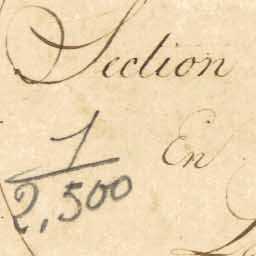 Section
1/2,500 En